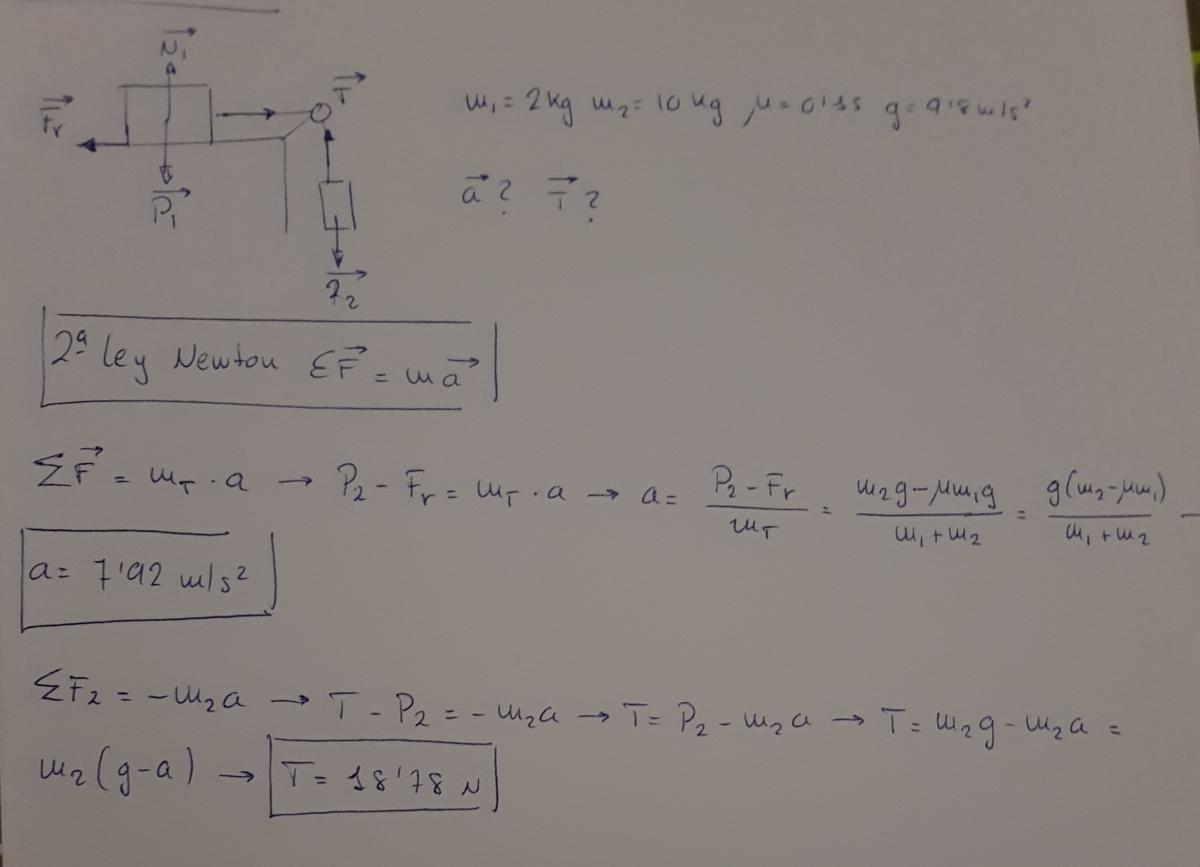 N₁
Fr
T
m₁ = 2kg m₂ = 10 kg μ = 0'15 g = 9'8 m/s²
P₁
a? T?
P₂
2ª ley Newton ΣF = ma
ΣF = m_T · a → P₂ - Fr = m_T · a → a = (P₂ - Fr)/m_T = (m₂g - μm₁g)/(m₁ + m₂) = g(m₂ - μm₁)/(m₁ + m₂) —
a = 7'92 m/s²
ΣF₂ = -m₂a → T - P₂ = -m₂a → T = P₂ - m₂a → T = m₂g - m₂a =
m₂(g-a) → T = 18'78 N